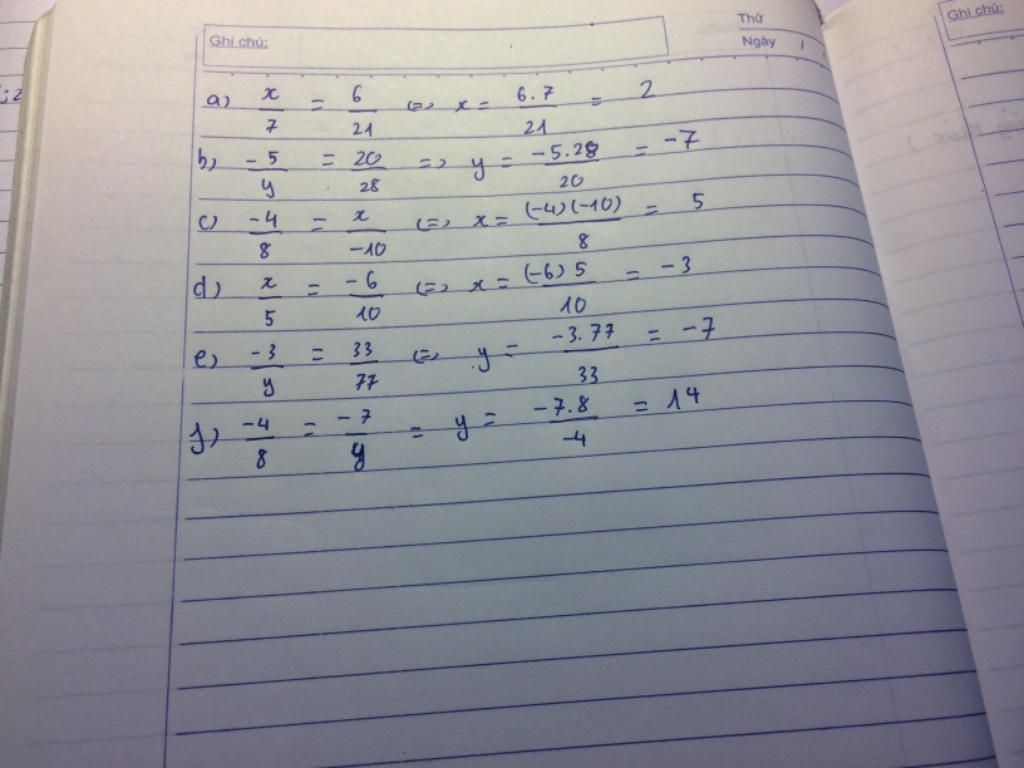 Ghi chú:
Thứ
Ngày
Ghi chú:
a) x/7 = 6/21 <=> x = 6.7/21 = 2
b) -5/y = 20/28 => y = -5.28/20 = -7
c) -4/8 = x/-10 <=> x = (-4)(-10)/8 = 5
d) x/5 = -6/10 <=> x = (-6)5/10 = -3
e) -3/y = 33/77 <=> y = -3.77/33 = -7
f) -4/8 = -7/y = y = -7.8/-4 = 14